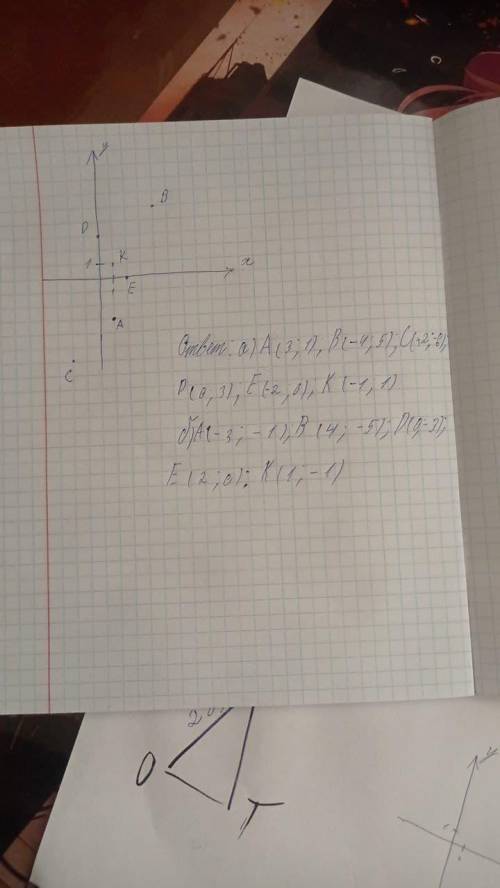 y
B
D
1 K
x
E
A
C
Ответ: а) A(3; 1), B(-4; 5); C(-2; -6);
D(0, 3), E(-2, 0), K(-1, 1)
б) A(-3; -1), B(4; -5); D(0; -3);
E(2; 0); K(1; -1)
O
T
y